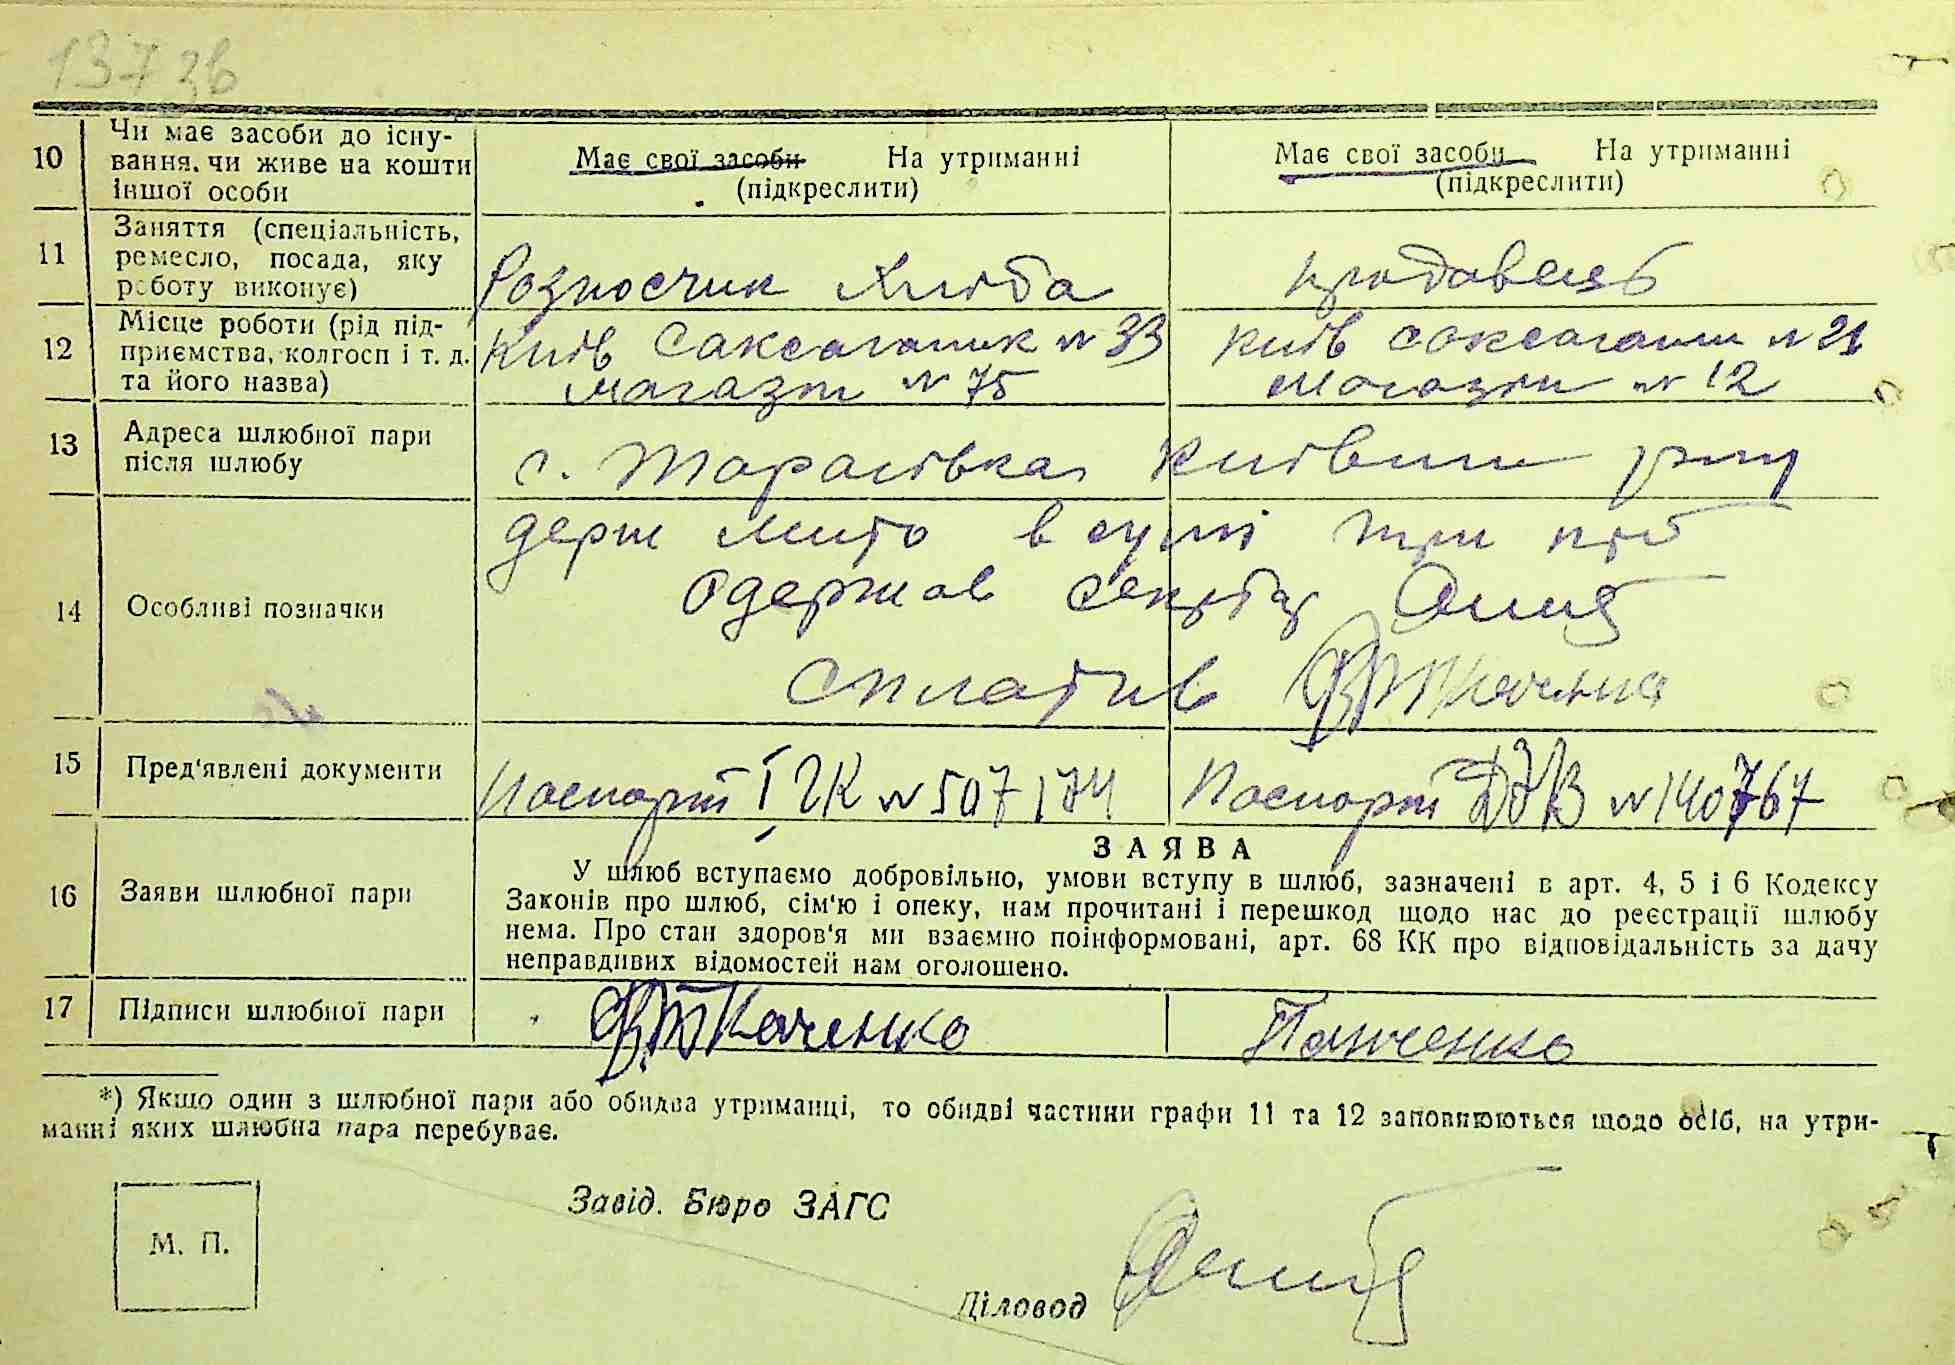 137 зв
10 Чи має засоби до існу-
вання, чи живе на кошти
іншої особи
Має свої засоби На утриманні
(підкреслити)
Має свої засоби На утриманні
(підкреслити)
11 Заняття (спеціальність,
ремесло, посада, яку
роботу виконує)
Розносчик хліба
продавець
12 Місце роботи (рід під-
приємства, колгосп і т. д.
та його назва)
Київ Саксаганск № 33
магазин № 75
Київ Саксаганск № 21
магазин № 12
13 Адреса шлюбної пари
після шлюбу
с. Тарасівка Київськ
14 Особливі позначки
держ мито в сумі три крб
Одержав секрет
Сплатив ВТкаченко
15 Пред'явлені документи
Паспорт І ЧК № 507174
Паспорт № 140767
16 Заяви шлюбної пари
ЗАЯВА
У шлюб вступаємо добровільно, умови вступу в шлюб, зазначені в арт. 4, 5 і 6 Кодексу
Законів про шлюб, сім'ю і опеку, нам прочитані і перешкод щодо нас до реєстрації шлюбу
нема. Про стан здоров'я ми взаємно поінформовані, арт. 68 КК про відповідальність за дачу
неправдивих відомостей нам оголошено.
17 Підписи шлюбної пари
ВТкаченко
Панченко
*) Якщо один з шлюбної пари або обидва утриманці, то обидві частини графи 11 та 12 заповнюються щодо осіб, на утри-
манні яких шлюбна пара перебуває.
М. П.
Завід. Бюро ЗАГС
Діловод